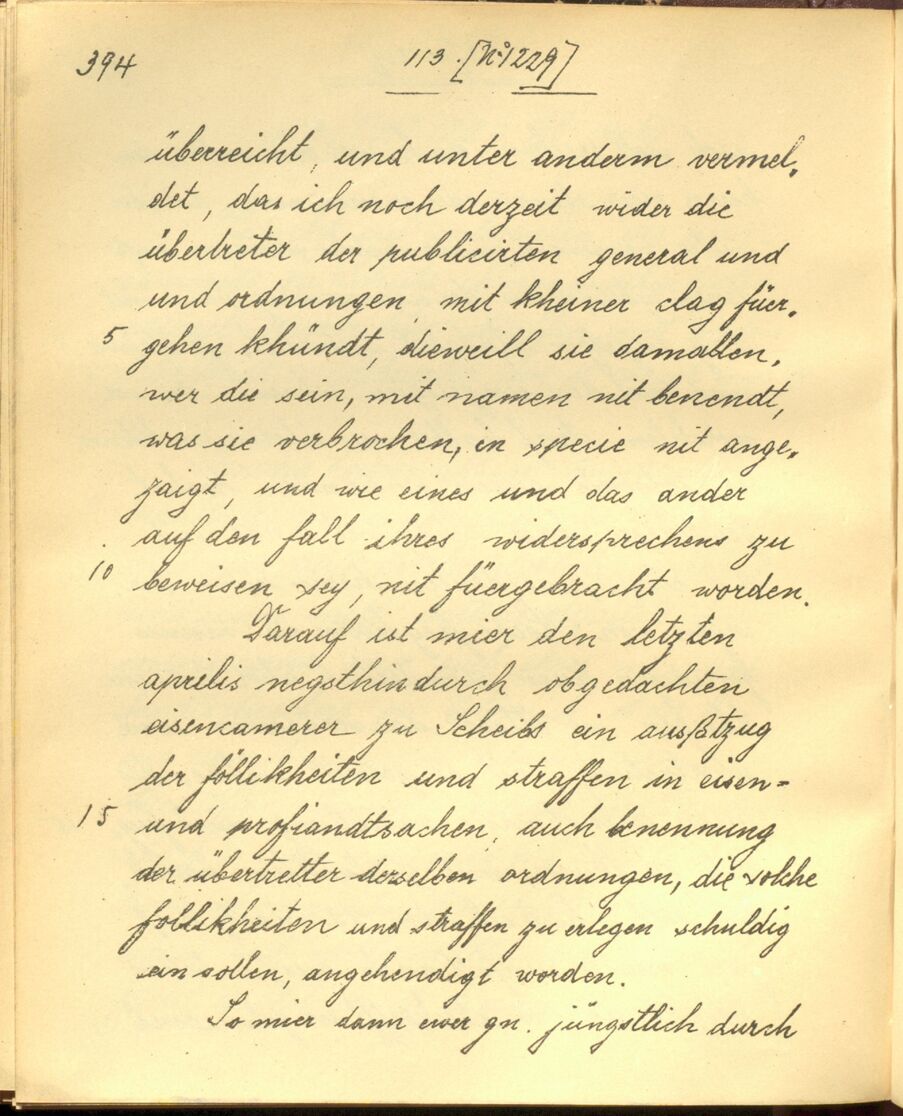 394
113. [N° 1229]
überreicht, und unter anderm vermel,
det, das ich noch derzeit wider die
übertreter der publicirten general und
und ordnungen mit kheiner clag füer,
5 gehen khündt, dieweill sie damallen,
wer die sein, mit namen nit benendt,
was sie verbrochen, in specie nit ange,
zaigt, und wie eines und das ander
auf den fall ihres widersprechens zu
10 beweisen sey, nit füergebracht worden.
Darauf ist mier den letzten
aprilis negsthin durch obgedachten
eisencamerer zu Scheibs ein ausßtzug
der föllikheiten und straffen in eisen=
15 und profiandtsachen, auch benennung
der übertretter derselben ordnungen, die solche
follikheiten und straffen zu erlegen schuldig
ein sollen, angehendigt worden.
So mier dann ewer gn. jüngstlich durch